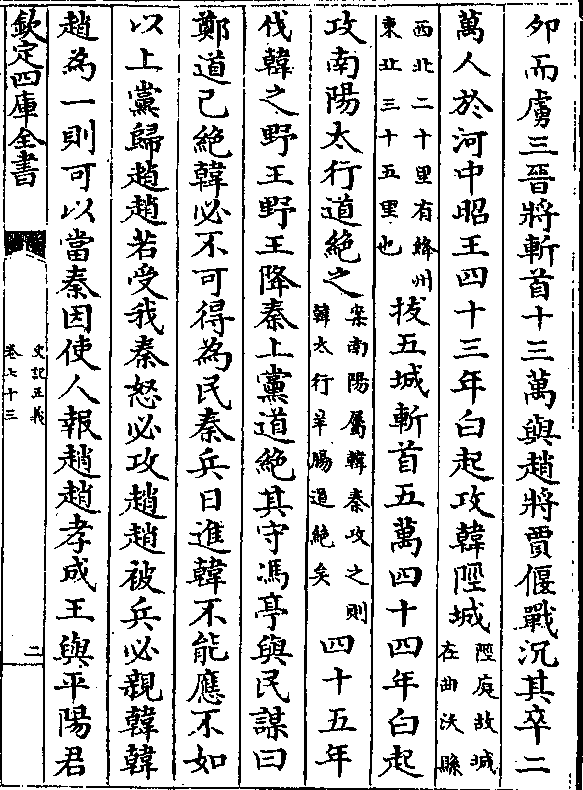 夘而虜三晉將斬首十三萬與趙將賈偃戰沉其卒二
萬人於河中昭王四十三年白起攻韓陘城陘庭故城在曲沃縣
西北二十里有絳州東北三十五里也拔五城斬首五萬四十四年白起
攻南陽太行道絶之案南陽屬韓秦攻之則韓太行羊腸道絶矣四十五年
伐韓之野王野王降秦上黨道絶其守馮亭與民謀曰
鄭道已絶韓必不可得為民秦兵日進韓不能應不如
以上黨歸趙趙若受我秦怒必攻趙趙被兵必親韓韓
趙為一則可以當秦因使人報趙趙孝成王與平陽君
欽定四庫全書
史記正義
卷七十三
二